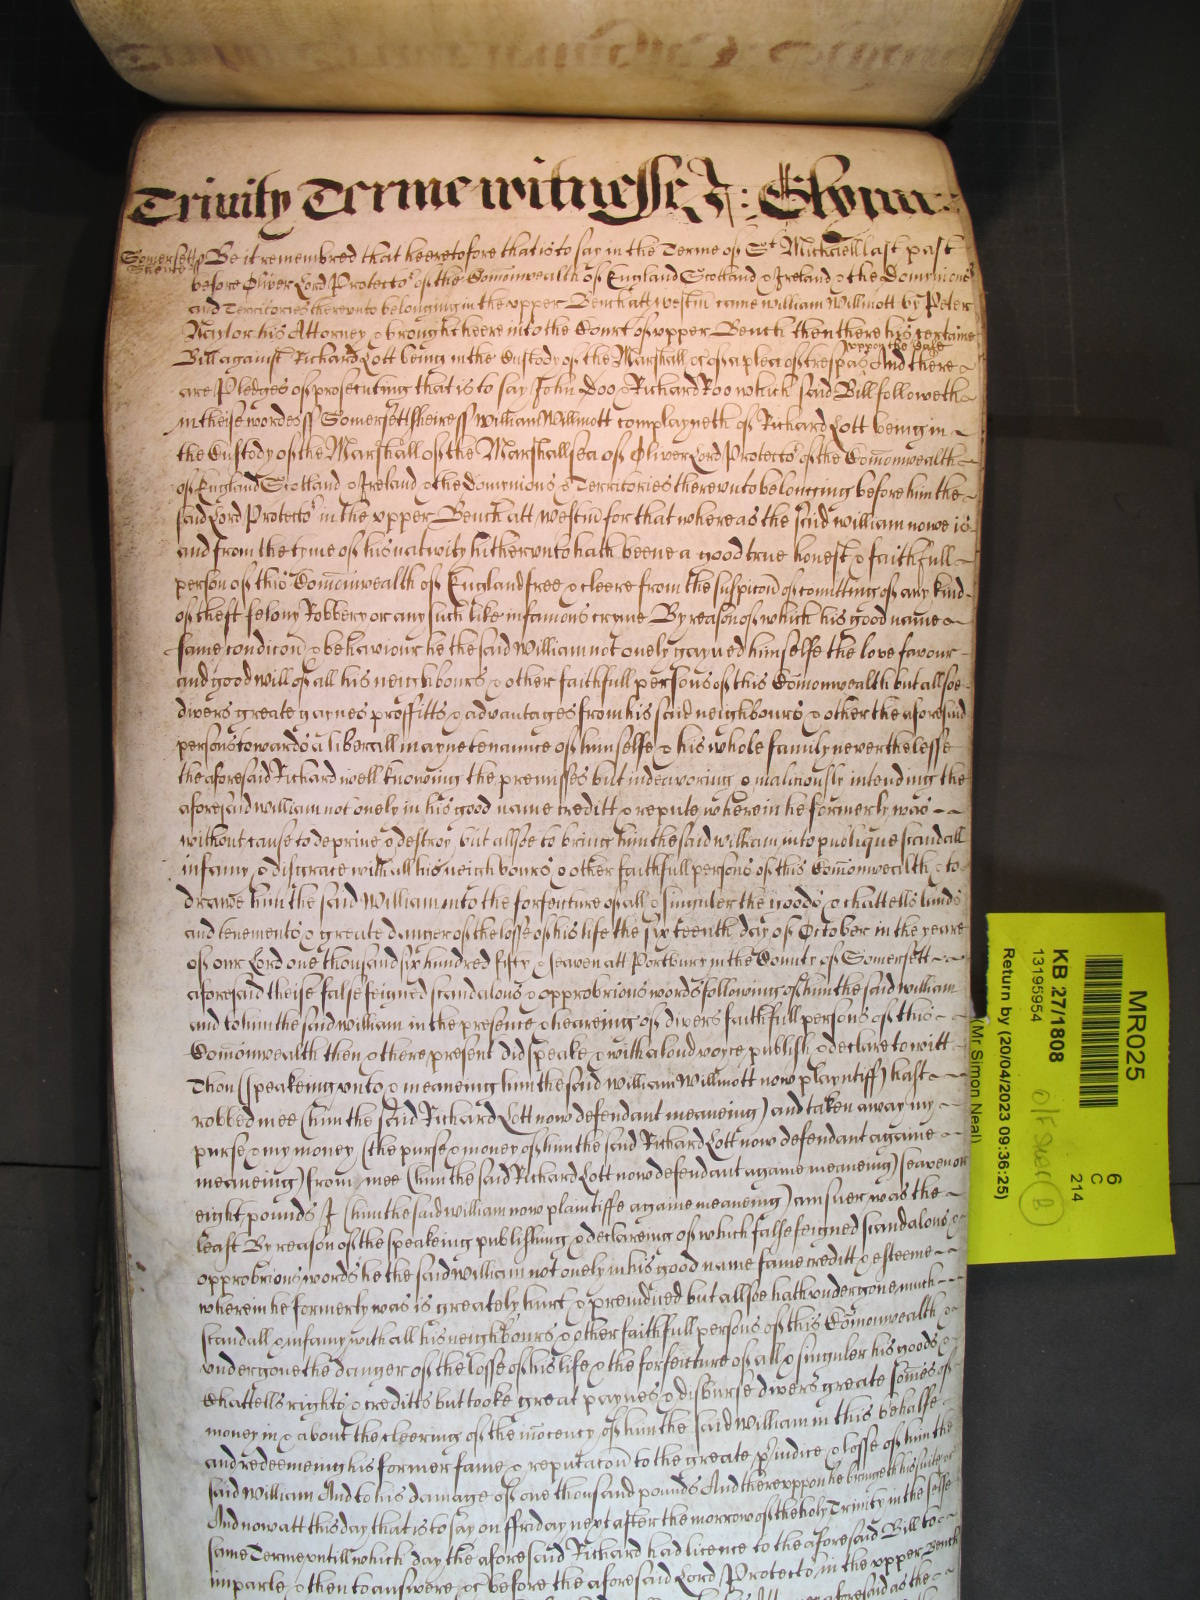 Trinity Terme witnesse J: Glynn:
Somersetts Be it remembred that heeretofore that is to say in the Terme of St Michaell last past
Sheire ss before Oliver Lord Protector of the Comonwealth of England Scotland & Ireland & the Dominions
and Territories thereunto belonging in the upper Bench att westm came William Willmott by Peter
Naylor his Attorney & brought heere into the Court of upper Bench then there his certaine
Bill against Richard Lott being in the Custody of the Marshall &c of a plea of trespas upon the Case And there
are Pledges of prosecuting that is to say John Doo & Richard Roo which said Bill followeth
in theise wordes ss Somersettsheire ss William Willmott complayneth of Richard Lott being in
the Custody of the Marshall of the Marshallsea of Oliver Lord Protector of the Comonwealth
of England Scotland & Ireland & the Dominions & Territories thereunto belonging before him the
said Lord Protector in the upper Bench att Westm for that whereas the said William nowe is
and from the tyme of his nativity hitherunto hath beene a good true honest & faithfull
person of this Comonwealth of England free & cleere from the suspicon of comitting of any kind
of theft felony Robbery or any such like infamous cryme By reason of which his good name
fame condicon & behaviour he the said William not onely gayned himselfe the love favour
and good will of all his neighbours & other faithfull persons of this Comonwealth but allsoe
divers greate gaynes proffitts & advantages from his said neighbours & other the aforesaid
persons towards a liberall maynetenaunce of himselfe & his whole family neverthelesse
the aforesaid Richard well knowing the premisses but indeavoring & maliciously intending the
aforesaid William not onely in his good name creditt & repute wherein he formerly was
without cause to deprive & destroy but allsoe to bring him the said William into publique scandall
infamy & disgrace with all his neighbours & other faithfull persons of this Comonwealth & to
drawe him the said William into the forfeiture of all & singuler the goods & chattells lands
and tenements & greate danger of the losse of his life the sixteenth day of October in the yeare
of our Lord one thousand six hundred fifty & seaven att Portbury in the County of Somersett
aforesaid theise false feigned scandalous & opprobrious words following of him the said William
and to him the said William in the presence & heareing of divers faithfull persons of this
Comonwealth then & there present did speake & with a loud voyce publish & declare to witt
Thou (speakeing unto & meaneing him the said William Willmott now playntiff) hast
robbed mee (him the said Richard Lott now defendant meaneing) and taken away my
purse & my money (the purse & money of him the said Richard Lott now defendant againe
meaneing) from mee (him the said Richard Lott now defendant againe meaneing) seaven or
eight pounds I (him the said William now plaintiffe againe meaneing) am suer was the
least By reason of the speakeing publishing & declareing of which false feigned scandalous &
opprobrious words he the said William not onely in his good name fame creditt & esteeme
wherein he formerly was is greately hurt & preiudiced but allsoe hath undergone much
scandall & infamy with all his neighbours & other faithfull persons of this Comonwealth &
undergone the danger of the losse of his life & the forfeiture of all & singuler his goods &
Chattells rights & creditts but tooke great paynes & disburse divers greate somes of
money in & about the cleering of the inocency of him the said William in this behalfe
and redeemeing his former fame & reputacon to the greate preiudice & losse of him the
said William And to his damage of one thousand pounds And thereuppon he bringeth his suite &c
And now att this day that is to say on ffriday next after the morrow of the holy Trinity in the selfe
same Terme untill which day the aforesaid Richard had licence to the aforesaid Bill to
imparle & then to answere &c before the aforesaid Lord Protector in the upper Bench
MR025
KB 27/1808
13195954
Return by (20/04/2023 09:36:25)
(Mr Simon Neal)
6
C
214